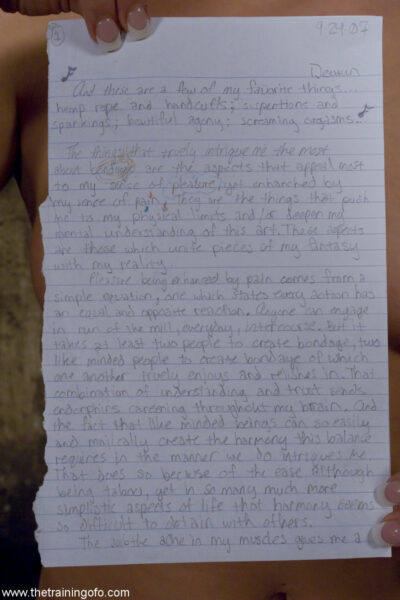 1
9-24-07
Devaun
And these are a few of my favorite things...
hemp rope and handcuffs; suspentions and
spankings; beautiful agony; screaming orgasms...
The things that truely intrigue me the most
about bondage are the aspects that appeal most
to my sense of pleasure, yet enhanced by
my sence of pain. They are the things that push
me to my physical limits and/or deepen my
mental understanding of this art. These aspects
are those which unite pieces of my fantasy
with my reality.
Pleasure being enhanced by pain comes from a
simple equation, one which states every action has
an equal and opposite reaction. Anyone can engage
in run of the mill, everyday, intercourse. But it
takes at least two people to create bondage, two
like minded people to create bondage of which
one another truely enjoys and relishes in. That
combination of understanding and trust sends
endorphins careening throughout my brain. And
the fact that like minded beings can so easily
and majically create the harmony this balance
requires in the manner we do intrigues me.
That does so because of the ease although
being taboo, yet in so many much more
simplistic aspects of life that harmony seems
so difficult to obtain with others.
The subtle ache in my muscles gives me a
www.thetrainingofo.com